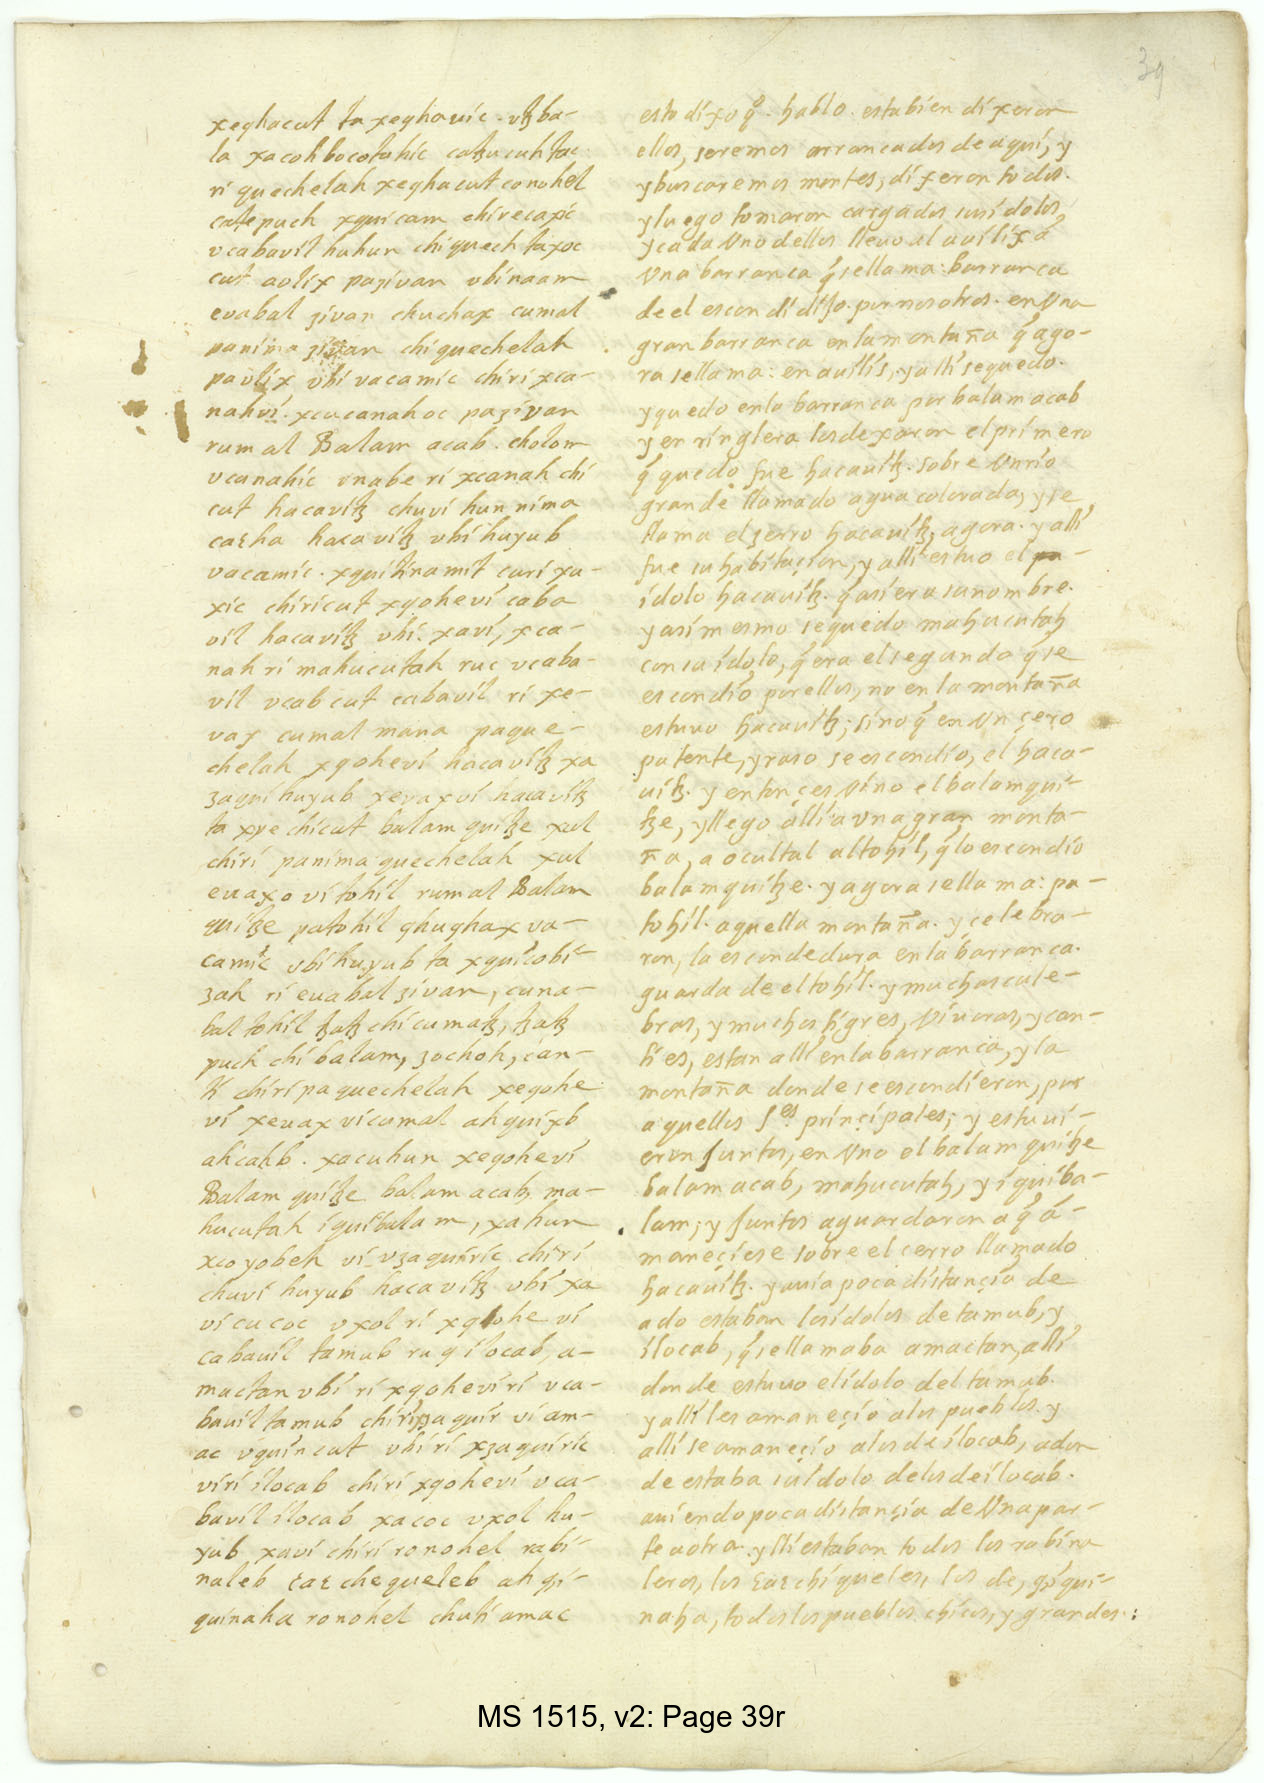 39
xeqhacut ta xeqhauic. vꜩba-
la xacohbocotahic caꜩucuhtac
ri quechelah xeqhacut conohel
catepuch xquicam chirecaxic
vcabavil huhun chiquech taxoc
cut avlix paȝivan vbinaam
evabal ȝivan chuchax cumal
panima ȝivan chiquechelah
pavlix vbi vacamic chiri xca-
nahvi. xcucanahoc paȝivan
rumal Balam acab. cholom
vcanahic vnabe ri xcanah chi
cut hacaviꜩ chuvi hun nima
caɛha hacaviꜩ vbi huyub
vacamic. xquitinamit curi xu-
xic chiricut xqohevi caba
vil hacaviꜩ vbi. xavi, xca-
nah ri mahucutah ruc vcaba-
vil vcab cut cabavil ri xe-
vax cumal mana paque-
chelah xqohevi hacaviꜩ xa
ȝaqui huyub xevaxvi hacaviꜩ
ta xpe chicut balam quiꜩe xul
chiri panima quechelah xul
euaxo vi tohil rumal Balam
quiꜩe patohil qhughax va-
camic vbi huyub ta xquicobi-
ȝah ri euabal ȝivan, cuna-
bal tohil ꜩaꜩ chi cumaꜩ, ꜩaꜩ
puch chi balam, ȝochoh, can-
ti chiri paquechelah xeqohe
vi xeuax vi cumal ahquixb
ahcahb. xacuhun xeqohevi
Balam quiꜩe balam acab ma-
hucutah iquibalam, xahun
xcoyobeh vi vȝaquiric chiri
chuvi huyub hacaviꜩ vbi xa
vi cucoc vxol ri xqohe vi
cabauil tamub ruq ilocab, a-
mactan vbi ri xqohevi ri vca-
bauil tamub chiri xȝaquir vi am-
ac vquin cut vbi ri xȝaquiric
viri ilocab chiri xqohevi vca-
bavil ilocab xacoc vxol hu-
yub xavi chiri ronohel rabi-
naleb caɛchequeleb ah qi-
quinaha ronohel chuti amac
esto dixo q͒. hablo. esta bien dixeron
ellos, seremos arrancados de aqui, y
y buscaremos montes, dixeron todos.
y luego tomaron cargados sus idolos,
y cada Vno dellos lleuo al auilixa
Vna barranca q̃ se llama: barranca
de el escondidiso. por nosotros. en Vna
gran barranca en la montaña q̃ ago-
ra se llama: en auilis, y alli se quedo.
y quedo en la barranca por balam acab
y en ringlera los dexaron el primero
q̃ quedo fue hacauiꜩ. sobre Vn rio
grande llamado agua colorada, y se
llama el serro hacauiꜩ, agora. y alli
fue su habitaçion, y alli estuo el
idolo hacauiꜩ. q̃ asi era su nombre.
y asi mesmo se quedo mahucutah
con su idolo, q̃ era el segundo q̃ se
escondio por ellos, no en la montaña
estuuo hacauiꜩ; sino q̃ en Vn sero
patente, y raso se escondio, el haca-
uiꜩ. y entonçes Vino el balam qui-
ꜩe, y llego alli a vna gran monta-
ña, a ocultal al tohil, q̃ lo escondio
balam quiꜩe. y agora se llama: pa-
tohil. aquella montaña. y celebra-
ron, la escondedura en la barranca.
guarda de el tohil. y muchas cule-
bras, y muchos tigres, Viuoras, y can-
ties, estan alli en la barranca, y la
montaña donde se escondieron, por
aquellos s^es prinçipales; y estuui-
eron juntos, en Vno el balam quiꜩe
balam acab, mahucutah, y iquiba-
lam; y juntos aguardaron a q̃ a-
maneçiese sobre el cerro llamado
hacauiꜩ. y auia poca distançia de
ado estaban los idolos de tamub, y
ilocab, q̃ se llamaba amactan, alli
donde estuuo el idolo del tamub.
y alli les amaneçio a los pueblos. y
alli se amaneçio a los de ilocab, adon
de estaba su idolo de los de ilocab.
auiendo poca distançia de Vna par-
te a otra. y lli estaban todos los rabina
leros, los caɛchiqueles, los de, qiqui-
naha, todos los pueblos chicos, y grandes.:
MS 1515, v2: Page 39r